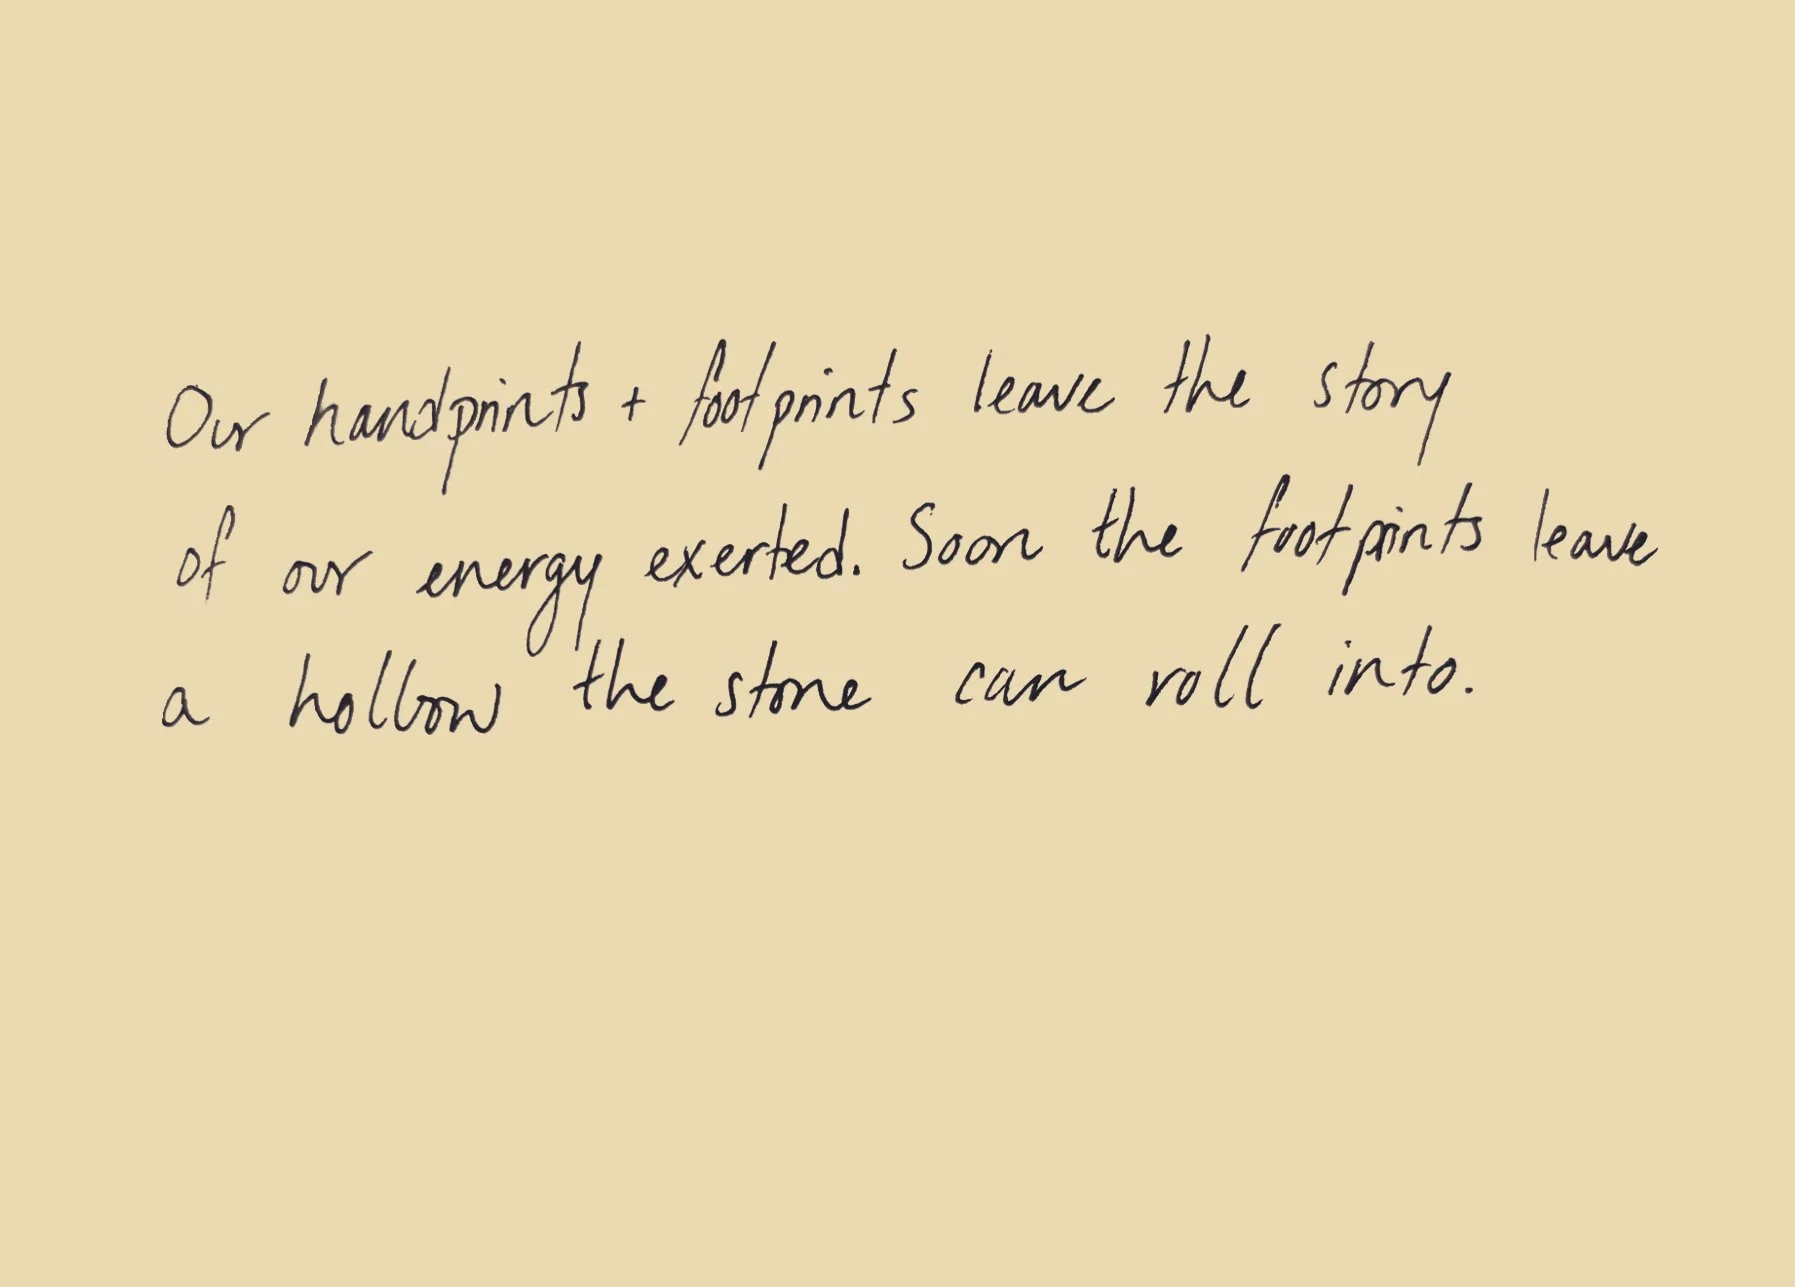 Our handprints + footprints leave the story
of our energy exerted. Soon the footprints leave
a hollow the stone can roll into.